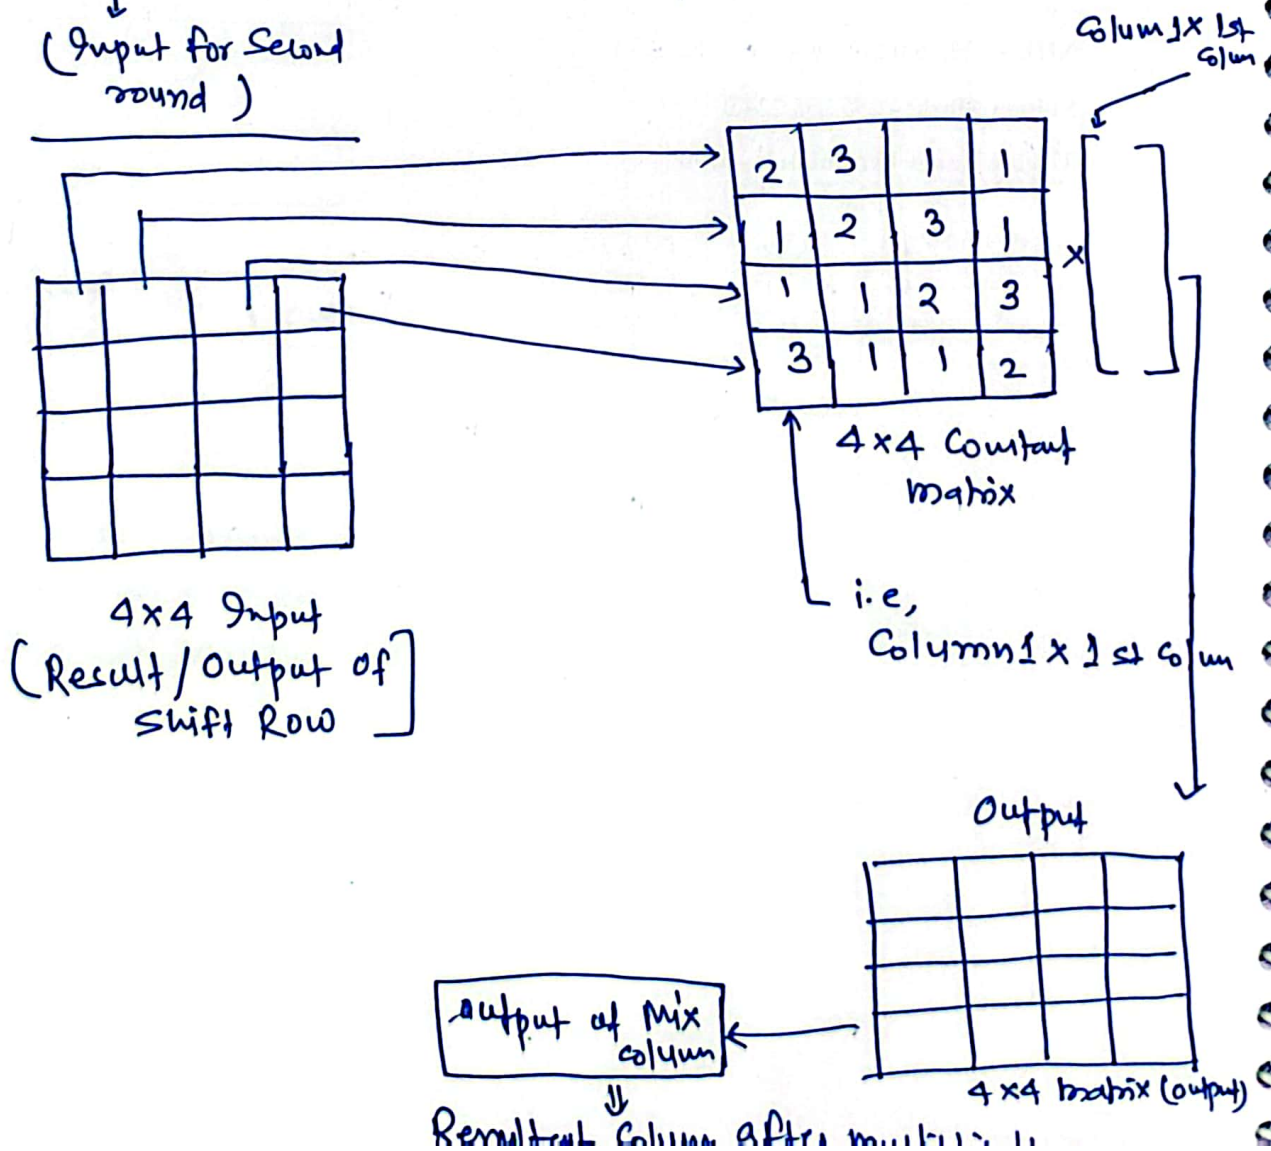 (Input for Second
round )
Colum1x 1st
Colum
2 3 1 1
1 2 3 1
1 1 2 3
3 1 1 2
x
4x4 Constant
matrix
i.e,
Column1 x 1st Colum
4x4 Input
(Result/Output of
Shift Row]
Output
4x4 matrix (output)
output of Mix
column
⇓
Resultent Column after